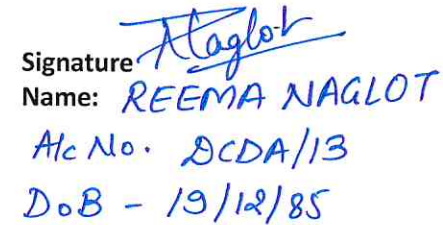 Signature Naglot
Name: REEMA NAGLOT
A/c No. DCDA/13
DoB - 19/12/85